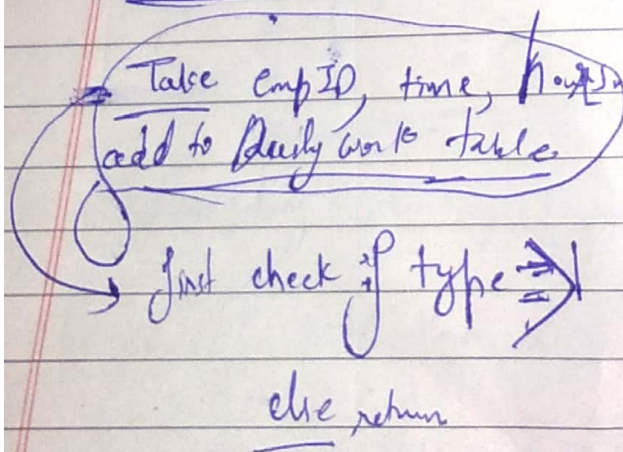 Take empID, time, hours
add to Daily work table
first check if type
else return